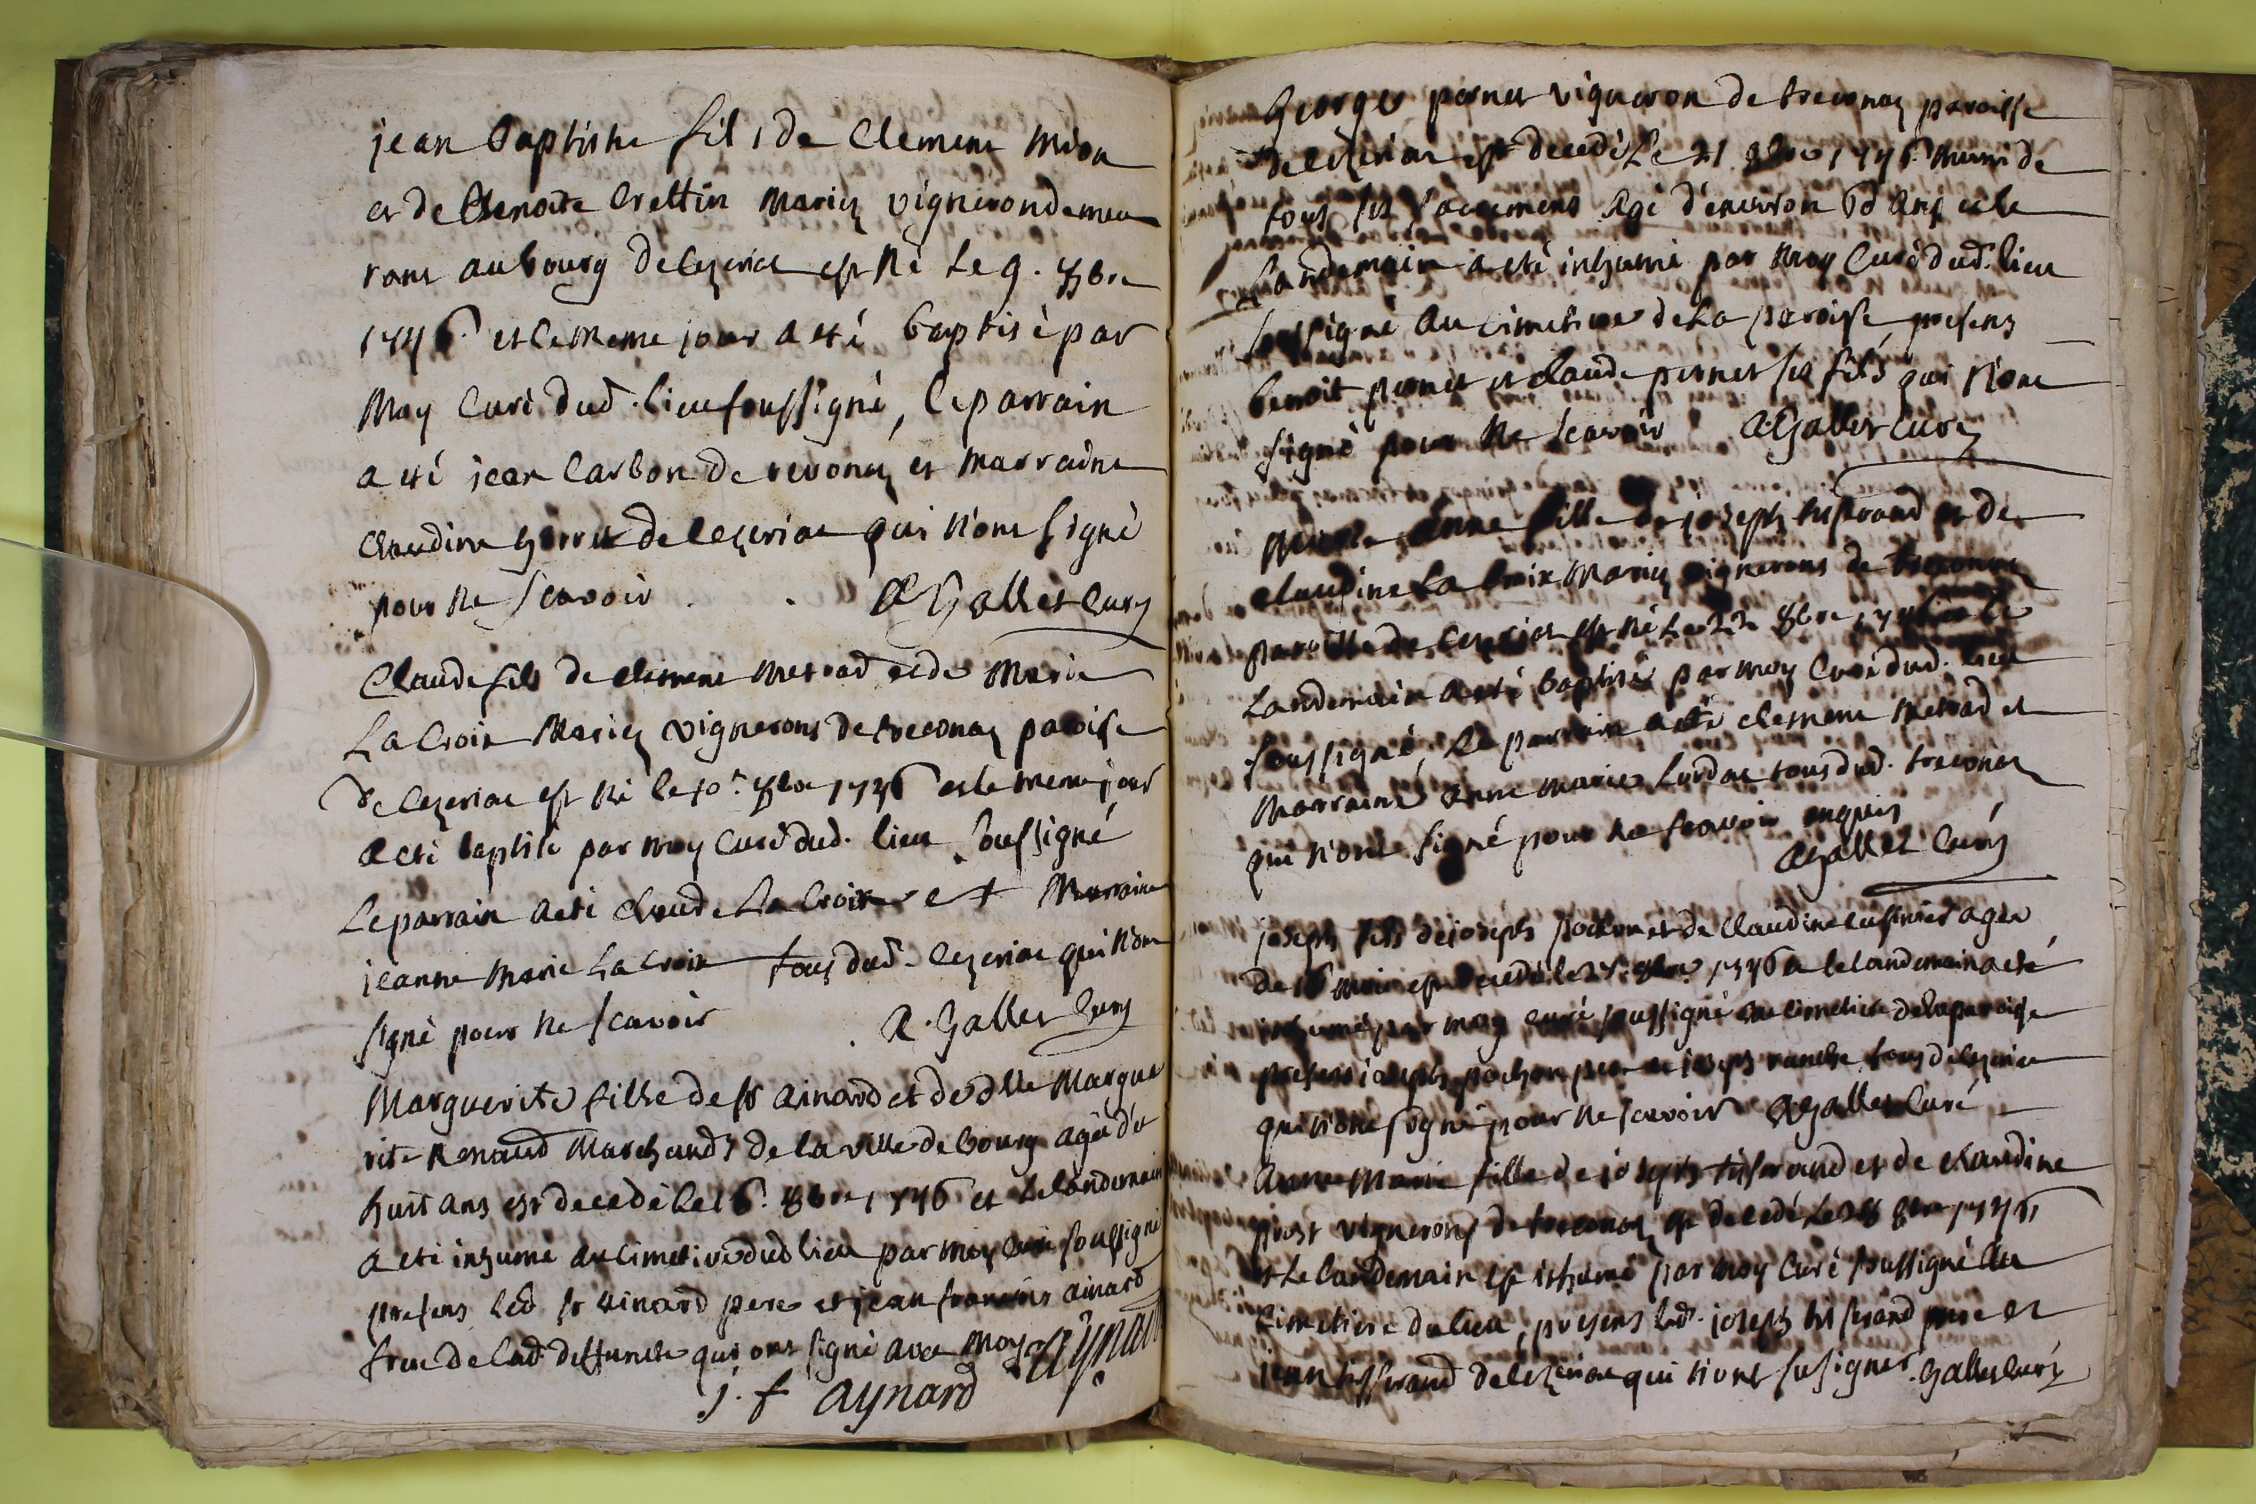 jean baptiste fils de Clement Mion
et de Benoite Crettin Mariez vignerondemeu
rant au bourg de Cezeriat est Né Le 9. 8bre
1746. et Le Meme jour a eté baptisé par
Moy Curé dud. lieu soussigné, Le parrain
a eté jean Carbon de revonaz et Marraine
Claudine de Cezeriat qui N'ont signé
pour Ne scavoir . . A Gallet Curé
Claude fils de Clement Metrad et de Marie
La Croix Mariez vignerons de treconaz paroisse
de Cezeriat est Né le 10e. 8bre 1746 et le meme jour
a eté baptisé par moy Curé dud. lieu soussigné
Le parrain a eté Claude La Croix et Marraine
jeanne Marie La Croix tous dud. Cezeriat qui N'ont
signé pour Ne scavoir . A. Gallet Curé
Marguerite fille de sr Ainard et de dlle Margue
rite Renaud Marchands de la ville de bourg agée de
huit ans est decedé le 16. 8bre 1746 et Le landemain
a eté inhumé au cimetiere dud lieu par moy Curé soussigné
presens led sr ainard pere et jean francois ainard
frere de lad. deffuncte qui ont signé avec moy Aynard
j. f aynard
George pernet vigneron de treconaz paroisse
de Cezeriat est decedé Le 21 8bre 1746. Muni de
tous ses sacremens agé d'environ 60 ans et le
Landemain a eté inhumé par Moy Curé dud. lieu
soussigné au cimetiere de La paroisse presens
benoit pernet et Claude pernet ses fils qui N'ont
signé pour Ne scavoir A Gallet Curé
Anne fille de joseph tisserand et de
Claudine La Croix Mariez vignerons de treconaz
paroisse de Cezeriat est Né Le 22 8bre 1746 et le
Landemain a eté baptisé par moy Curé dud. lieu
soussigné, Le parrain a eté Clement Metrad et
Marraine anne marie tous dud. treconaz
qui N'ont signé pour Ne scavoir enquis
A Gallet Curé
joseph fils de joseph pochon et de Claudine agée
de 16 mois est decedé le 8bre 1746 et le landemain a eté
inhumé par moy curé soussigné au cimetiere de la paroisse
presens joseph pochon pere et joseph tous de Cezeriat
qui N'ont signé pour Ne scavoir A Gallet Curé
anne Marie fille de joseph tisserand et de Claudine
prost vignerons de treconaz est decedé Le 28 8bre 1746
et Le landemain est inhumé par Moy Curé soussigné au
Cimetiere du lieu, presens led. joseph tisserand pere et
jean tisserand de Cezeriat qui N'ont su signer. Gallet Curé